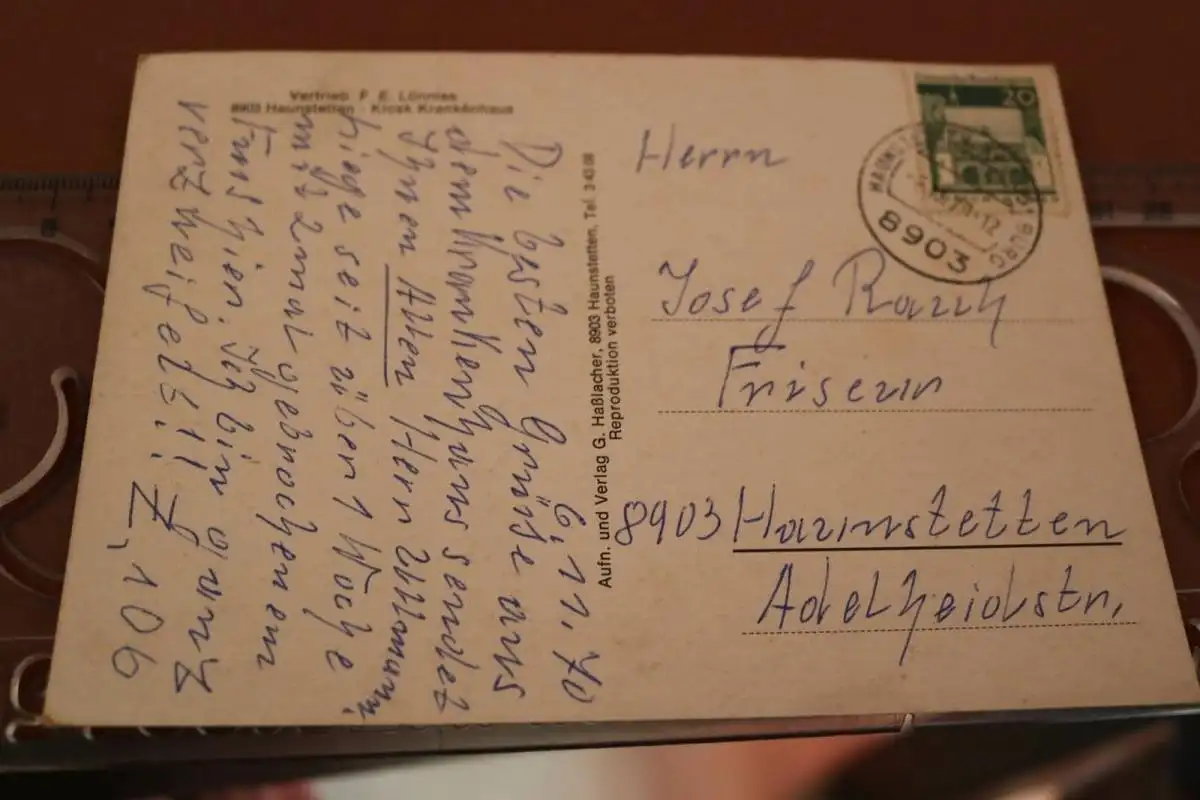 Vertrieb F. E. Lönnies
8903 Haunstetten - Kiosk Krankenhaus
6.11.70
Die besten Grüße aus
dem Krankenhaus sendet
Ihnen Allen Herr
liege seit über 1 Woche
mit 2mal gebrochenem
Fuss hier. Ich bin ganz
verzweifelt!!!
Z. 106
Aufn. und Verlag G. Haßlacher, 8903 Haunstetten, Tel. 3 43 08
Reproduktion verboten
20
8903
Herrn
Josef Rauch
Friseur
8903 Haunstetten
Adelheidstr.